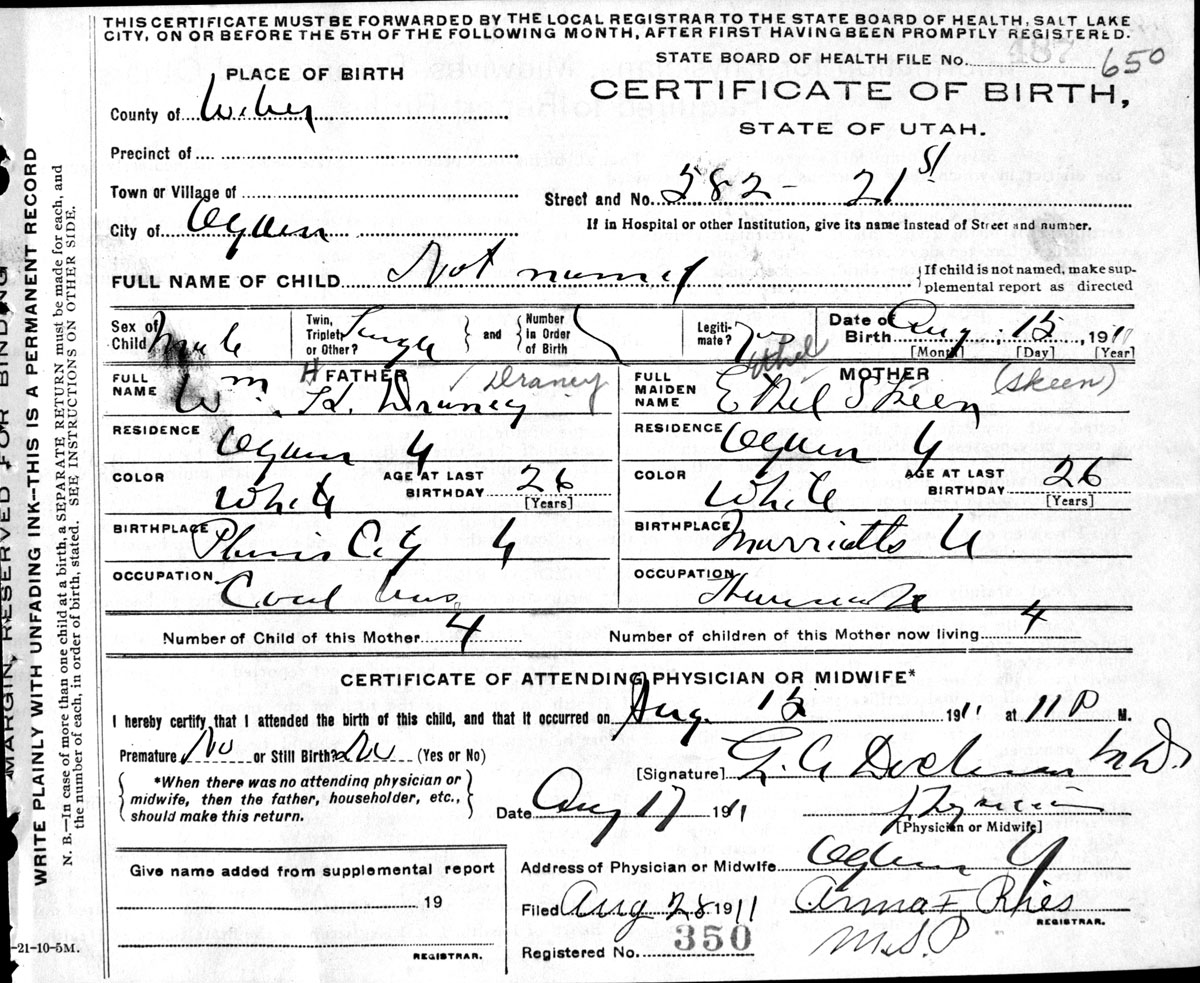 THIS CERTIFICATE MUST BE FORWARDED BY THE LOCAL REGISTRAR TO THE STATE BOARD OF HEALTH, SALT LAKE
CITY, ON OR BEFORE THE 5TH OF THE FOLLOWING MONTH, AFTER FIRST HAVING BEEN PROMPTLY REGISTERED.
STATE BOARD OF HEALTH FILE No. 487 650
PLACE OF BIRTH
CERTIFICATE OF BIRTH,
STATE OF UTAH.
County of Weber
Precinct of
Town or Village of
Street and No. 582 - 21 St
City of Ogden
If in Hospital or other Institution, give its name instead of Street and number.
FULL NAME OF CHILD Not named
If child is not named, make supplemental report as directed
Sex of Child Male
Twin, Triplet, or Other? Single and Number in Order of Birth
Legitimate? Yes
Date of Birth Aug. 15, 1911
[Month] [Day] [Year]
FATHER
FULL NAME Wm H. Draney Draney
MOTHER
FULL MAIDEN NAME Ethel Skeen Ethel (Skeen)
RESIDENCE Ogden U
RESIDENCE Ogden U
COLOR White AGE AT LAST BIRTHDAY 26 [Years]
COLOR White AGE AT LAST BIRTHDAY 26 [Years]
BIRTHPLACE Plain City U
BIRTHPLACE Marriotts U
OCCUPATION Coal bus.
OCCUPATION Housewife
Number of Child of this Mother 4
Number of children of this Mother now living 4
CERTIFICATE OF ATTENDING PHYSICIAN OR MIDWIFE*
I hereby certify that I attended the birth of this child, and that it occurred on Aug. 15 1911 at 11 P M.
Premature No or Still Birth? No (Yes or No)
[Signature] M.D.
*When there was no attending physician or
midwife, then the father, householder, etc.,
should make this return.
Date Aug 17 1911
Physician
[Physician or Midwife]
Give name added from supplemental report
19
REGISTRAR.
Address of Physician or Midwife Ogden U
Filed Aug 28 1911 Anna F Ries
REGISTRAR.
Registered No. 350 M.S.P
MARGIN RESERVED FOR BINDING
WRITE PLAINLY WITH UNFADING INK—THIS IS A PERMANENT RECORD
N. B.—In case of more than one child at a birth, a SEPARATE RETURN must be made for each, and
the number of each, in order of birth, stated. SEE INSTRUCTIONS ON OTHER SIDE.
-21-10-5M.